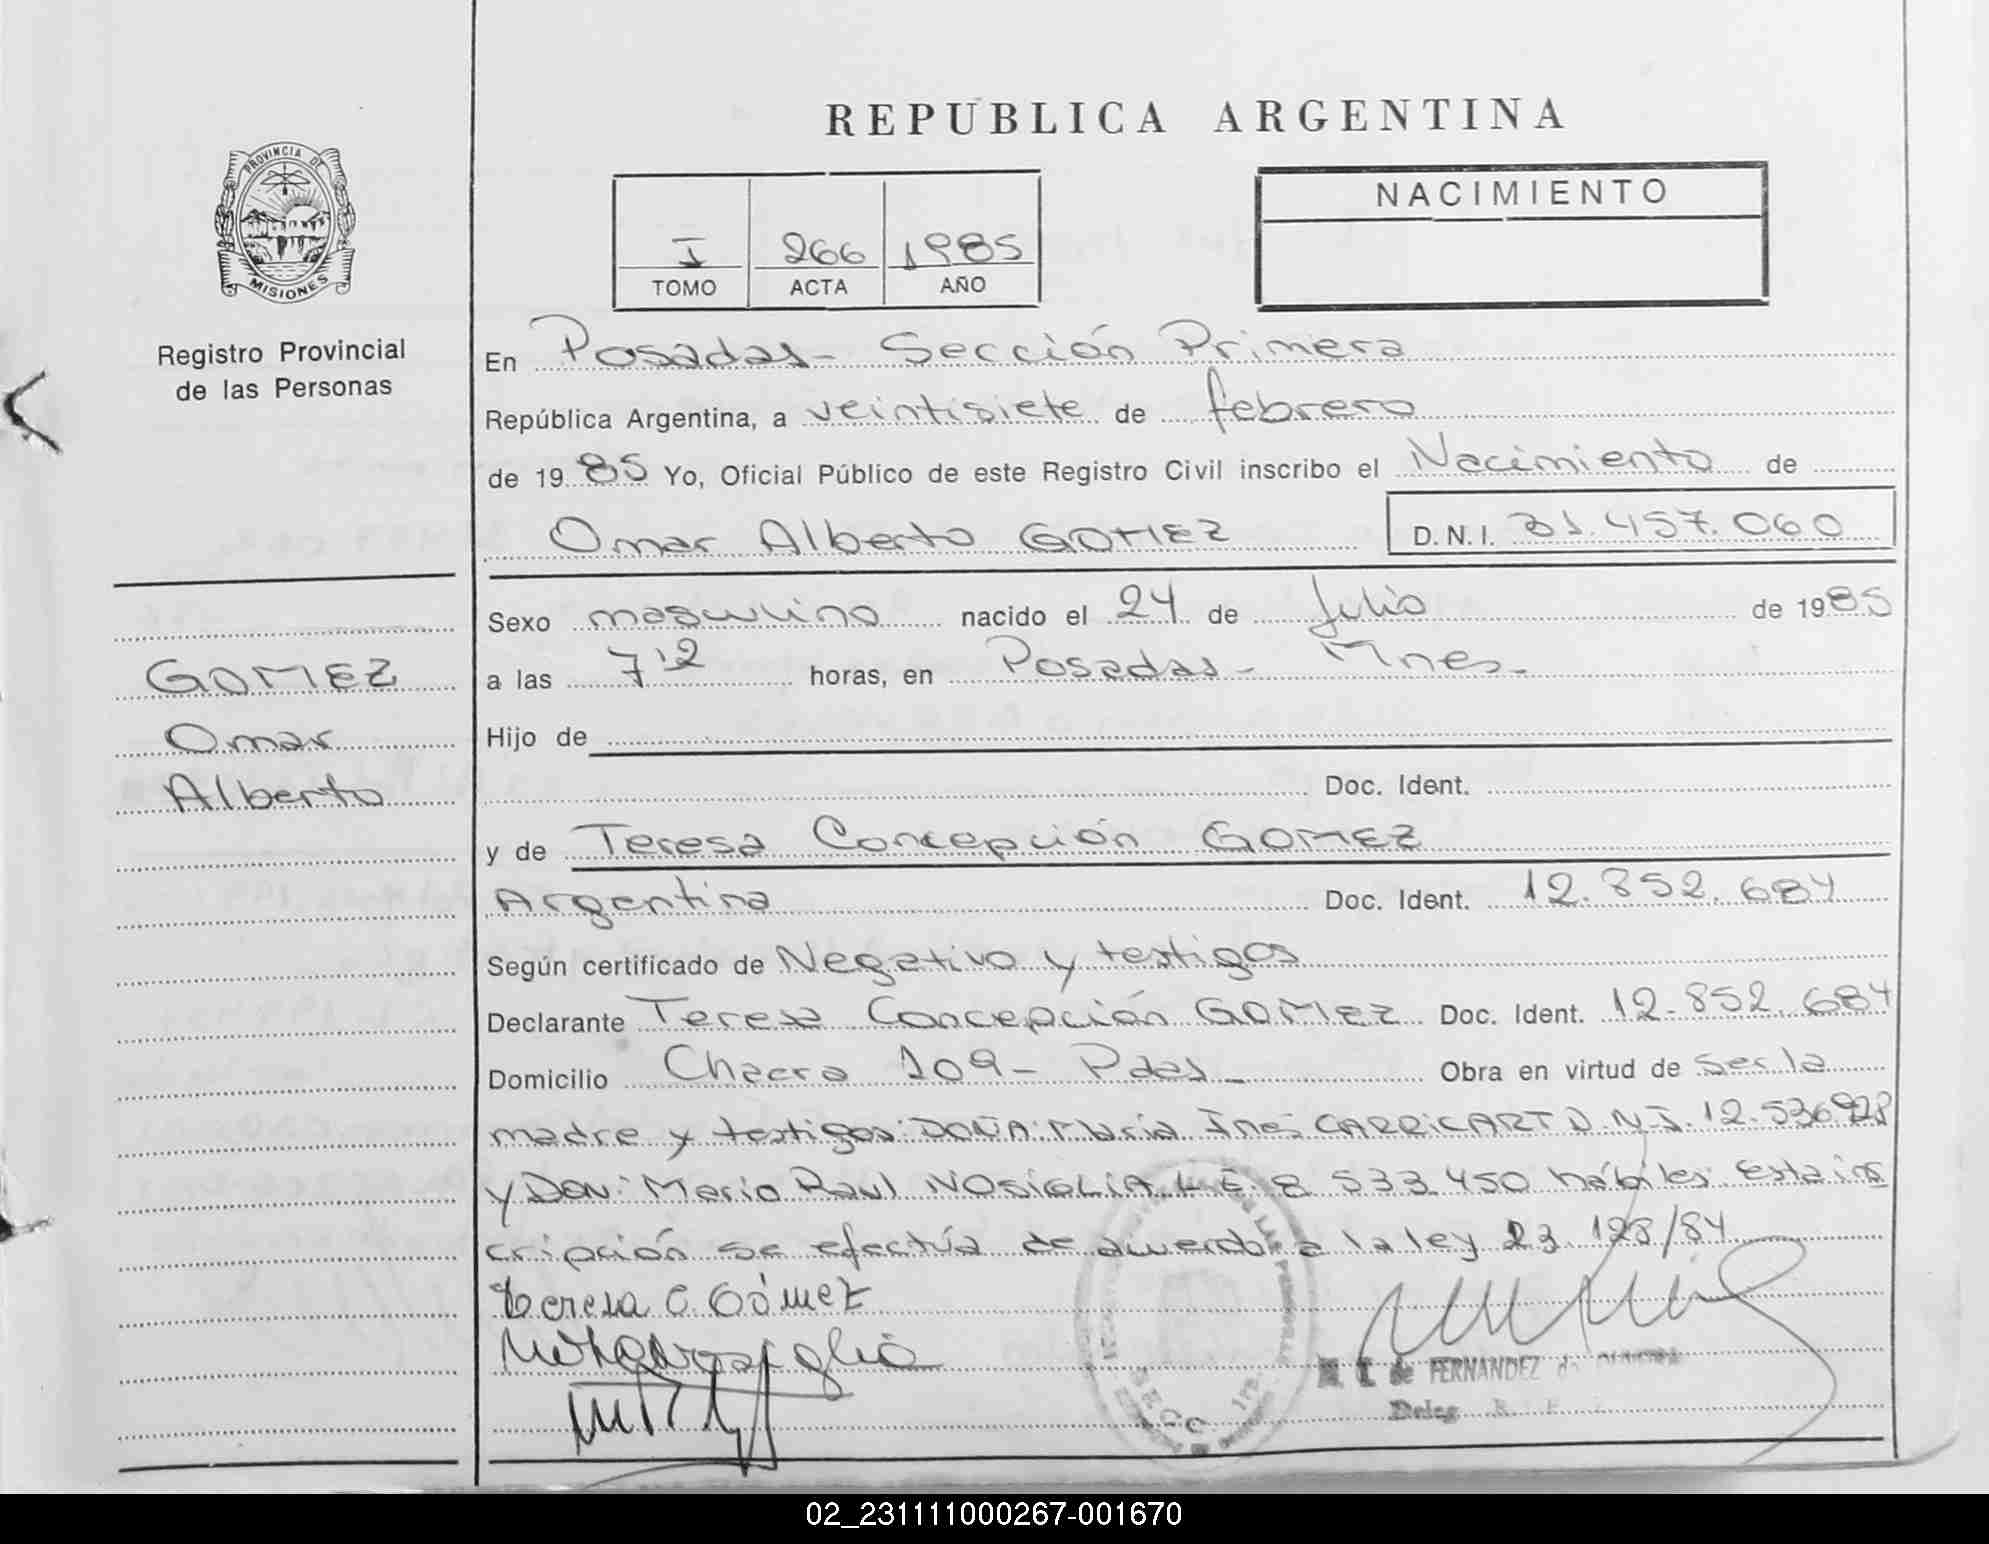 REPUBLICA ARGENTINA
PROVINCIA DE
MISIONES
Registro Provincial
de las Personas
I 266 1985
TOMO ACTA AÑO
NACIMIENTO
En Posadas - Sección Primera
República Argentina, a veintisiete de febrero
de 1985 Yo, Oficial Público de este Registro Civil inscribo el Nacimiento de
Omar Alberto GOMEZ D.N.I. 31.457.060
GOMEZ
Omar
Alberto
Sexo masculino nacido el 24 de Julio de 1985
a las 7'2 horas, en Posadas - Mnes -
Hijo de
Doc. Ident.
y de Teresa Concepción GOMEZ
Argentina Doc. Ident. 12.852.684
Según certificado de Negativo y testigos
Declarante Teresa Concepción GOMEZ Doc. Ident. 12.852.684
Domicilio Chacra 109 - Pdas - Obra en virtud de ser la
madre y testigos: DOÑA: María Inés CARRICART D.N.I. 12.536928
y DON: Mario Raul NOSIGLIA L E 8 533 450 hábiles Esta ins
cripción se efectúa de acuerdo a la ley 23 128/84
Teresa C. Gómez
M. I. de FERNANDEZ de
Deleg. R. P.
SECC. 1ra.
02_231111000267-001670